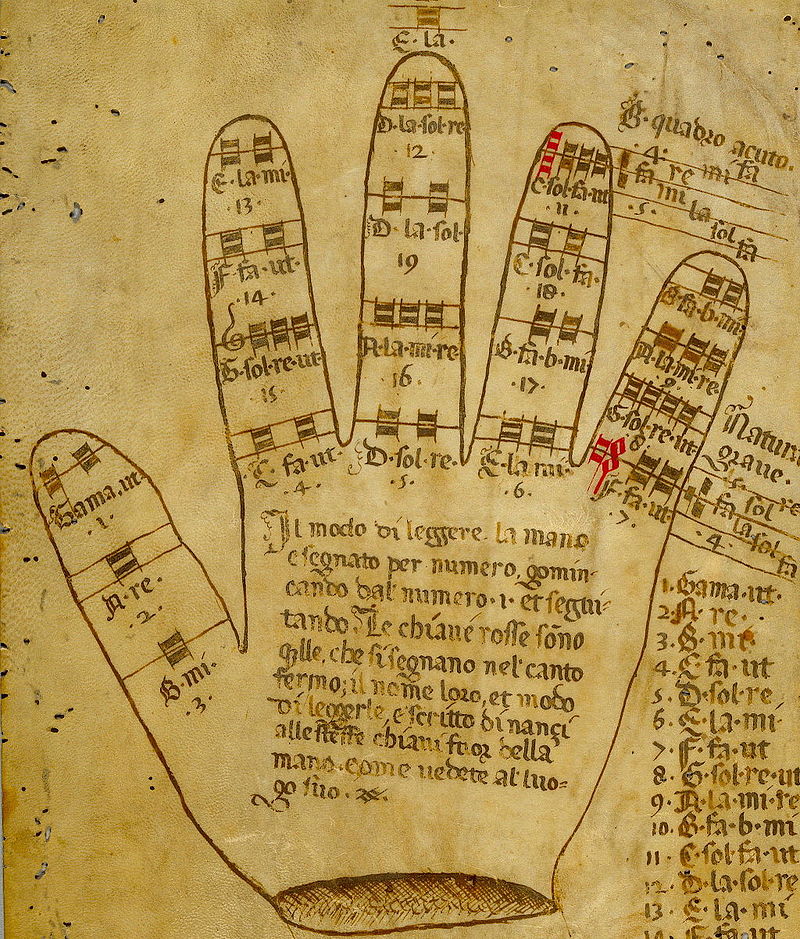 E·la·
D·la·sol·re
12
D·la·sol
19
A·la·mi·re
16
D·sol·re·
·5·
E·la·mi·
·13·
F·fa·ut·
·14·
G·sol·re·ut
15
C·fa·ut·
·4·
C·sol·fa·ut
·11·
C·sol·fa·
·18·
B·fa·b·mi
·17·
E·la·mi·
·6·
B·fa·b·mi
A·la·mi·re·
·9·
G·sol·re·ut
·8·
F·fa·ut
·7·
B·quadro acuto·
·4· re mi fa
fa mi la sol fa
·5·
Natura
grave·
fa sol
la sol fa
·4·
Gama·ut·
·1·
A·re·
·2·
B·mi·
·3·
Il modo di leggere la mano
e segnato per numero, comin-
cando dal numero·1· et segui-
tando Le chiaue rosse sono
qlle, che si segnano nel canto
fermo; il nome loro, et modo
di leggerle, e scritto dinanci
alle stesse chiaui fuor della
mano come uedete al luo=
go suo·
1·Gama·ut·
2·A·re·
3·B·mi·
4·C·fa·ut
5·D·sol·re
6·E·la·mi
7·F·fa·ut
8·G·sol·re·ut
9·A·la·mi·re
10·B·fa·b·mi
11·C·sol·fa·ut
12·D·la·sol·re
13·E·la·mi
14·F·fa·ut